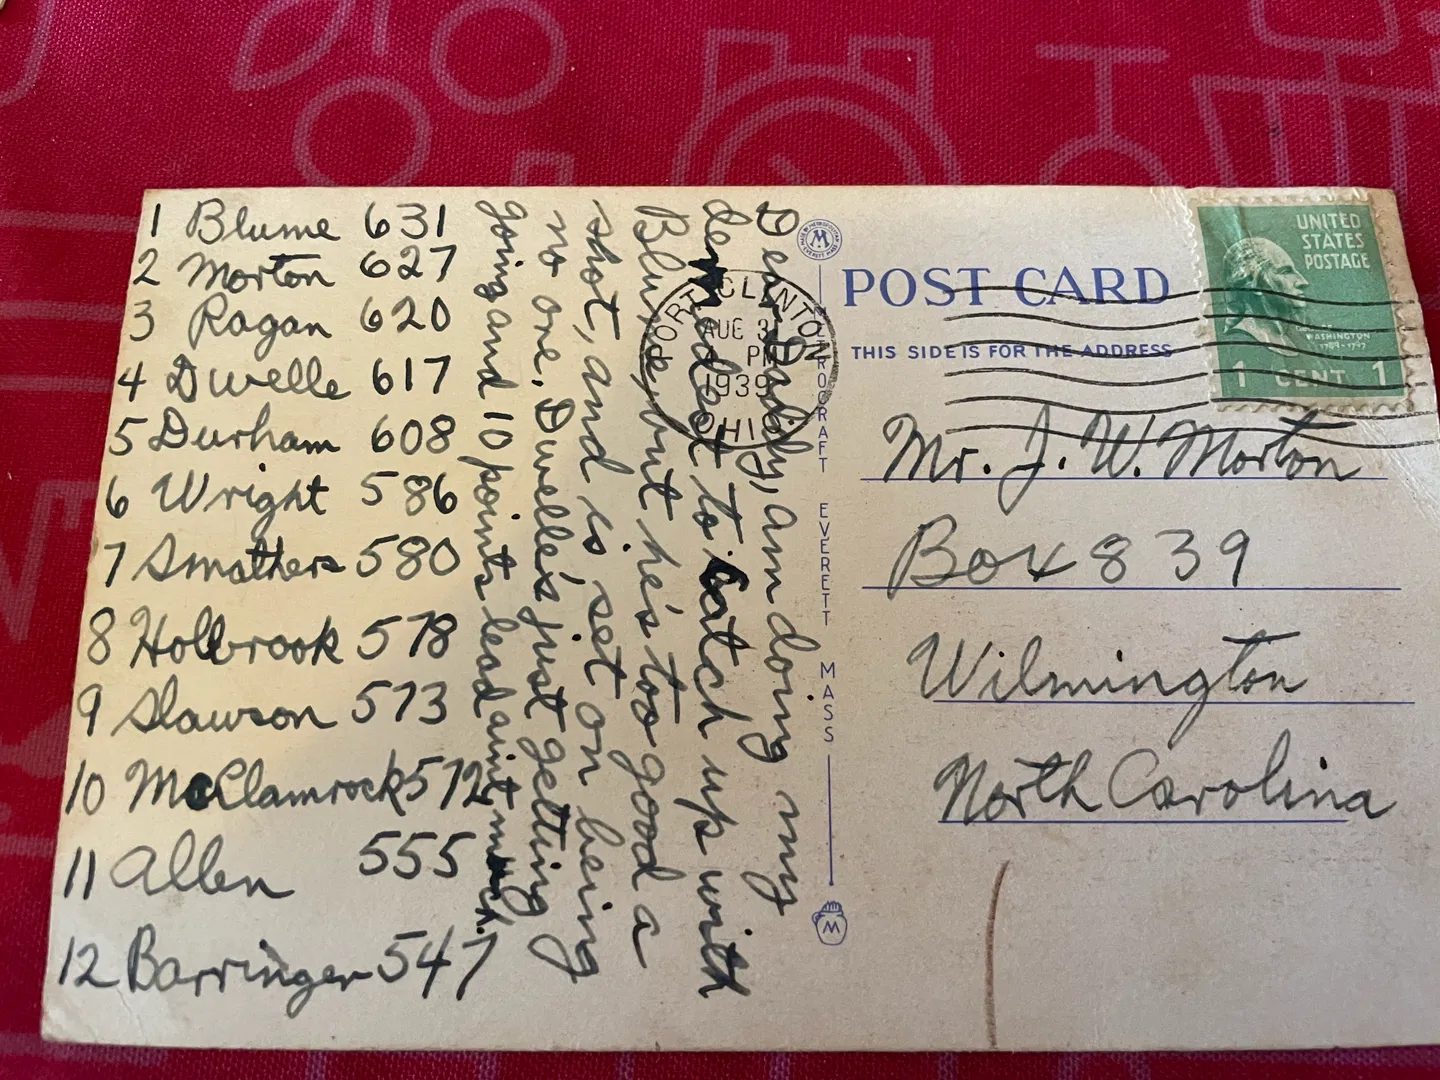 1 Blume 631
2 Morton 627
3 Ragan 620
4 Dwelle 617
5 Durham 608
6 Wright 586
7 Smathers 580
8 Holbrook 578
9 Slawson 573
10 McClamrock 572
11 Allen 555
12 Barringer 547
Dear Daddy, am doing my
dernedset to catch up with
Blume, but he's too good a
shot, and is set on being
no one. Dwelle's just getting
going and 10 points lead aint much.
MADE BY METROPOLITAN
M
EVERETT MASS
PORT CLINTON
AUG 3
PM
1939
OHIO
METROCRAFT EVERETT MASS
M
POST CARD
THIS SIDE IS FOR THE ADDRESS
UNITED
STATES
POSTAGE
WASHINGTON
1789-1797
1 CENT 1
Mr. J. W. Morton
Box 839
Wilmington
North Carolina